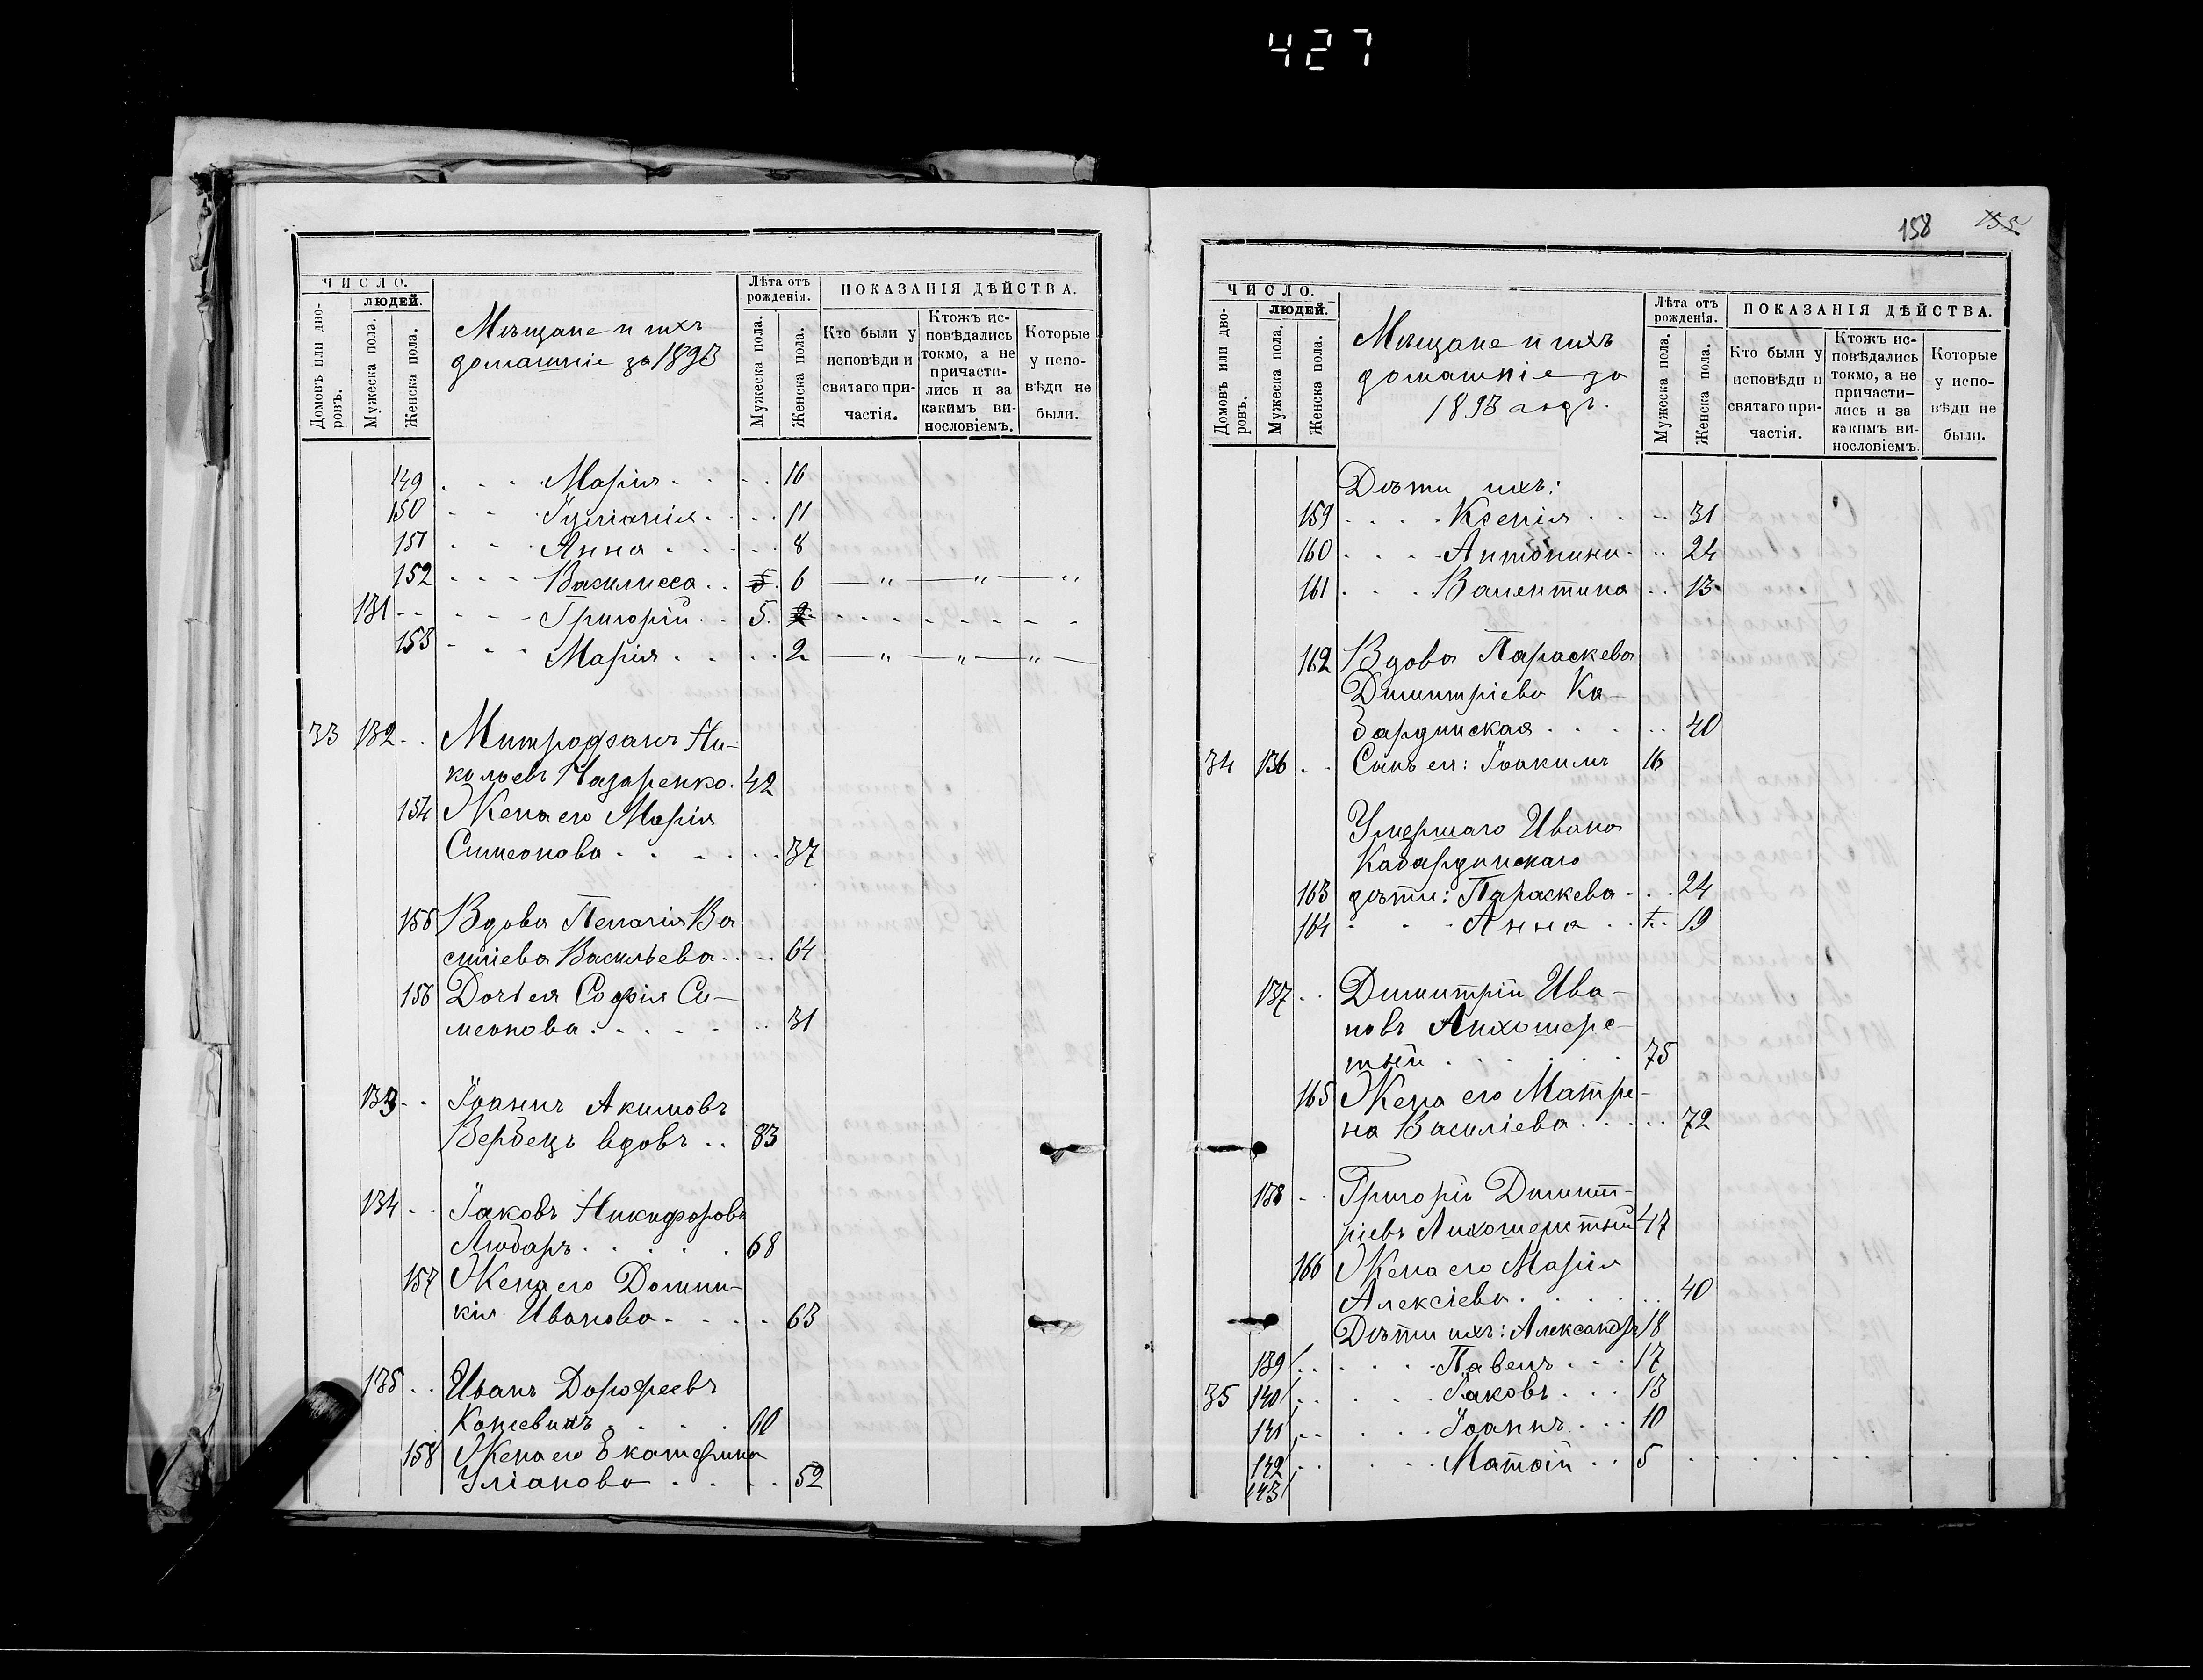 427
ЧИСЛО.
ЛЮДЕЙ.
Домовъ или дво-
ровъ.
Мужеска пола.
Женска пола.
Мѣщане и ихъ
домашніе за 1893
Лѣта отъ
рожденія.
Мужеска пола.
Женска пола.
ПОКАЗАНІЯ ДѢЙСТВА.
Кто были у
исповѣди и
святаго при-
частія.
Ктожъ ис-
повѣдались
токмо, а не
причасти-
лись и за
какимъ ви-
нословіемъ.
Которые
у испо-
вѣди не
были.
149 Марія 16
150 Іуліанія 11
151 Анна 8
152 Василисса 6 — „ — „ — „
131 Григорій 5
153 Марія 2 — „ — „ — „ —
33 132 Митрофанъ Ни-
колаевъ Назаренко 42
154 Жена его Марія
Симеонова 37
155 Вдова Пелагія Ва
силіева Васильева 64
156 Дочь ея Софія Си-
меонова 31
133 Іоаннъ Акимовъ
Вербецъ вдовъ 83
134 Іаковъ Никифоровъ
Любаръ 68
157 Жена его Домни-
кія Иванова 63
135 Иванъ Дорофеевъ
60
158 Жена его Екатерина
Уліанова 52
158 155
ЧИСЛО.
ЛЮДЕЙ.
Домовъ или дво-
ровъ.
Мужеска пола.
Женска пола.
Мѣщане и ихъ
домашніе за
1893 годъ.
Лѣта отъ
рожденія.
Мужеска пола.
Женска пола.
ПОКАЗАНІЯ ДѢЙСТВА.
Кто были у
исповѣди и
святаго при-
частія.
Ктожъ ис-
повѣдались
токмо, а не
причасти-
лись и за
какимъ ви-
нословіемъ.
Которые
у испо-
вѣди не
были.
Дѣти ихъ:
159 Ксенія 31
160 Антонина 24
161 Валентина 13
162 Вдова Параскева
Димитріева Ка-
бардинская 40
34 136 Сынъ ея: Іоакимъ 16
Умершаго Ивана
Кабардинскаго
163 дѣти: Параскева 24
164 Анна 19
137 Димитрій Ива-
новъ Лихошерс-
тный 75
165 Жена его Матре-
на Василіева 72
138 Григорій Димит-
ріевъ Лихошерстный 47
166 Жена его Марія
Алексіева 40
Дѣти ихъ: Александръ 18
139 Павелъ 17
35 140 Іаковъ 13
141 Іоаннъ 10
142 Матѳій 5
143